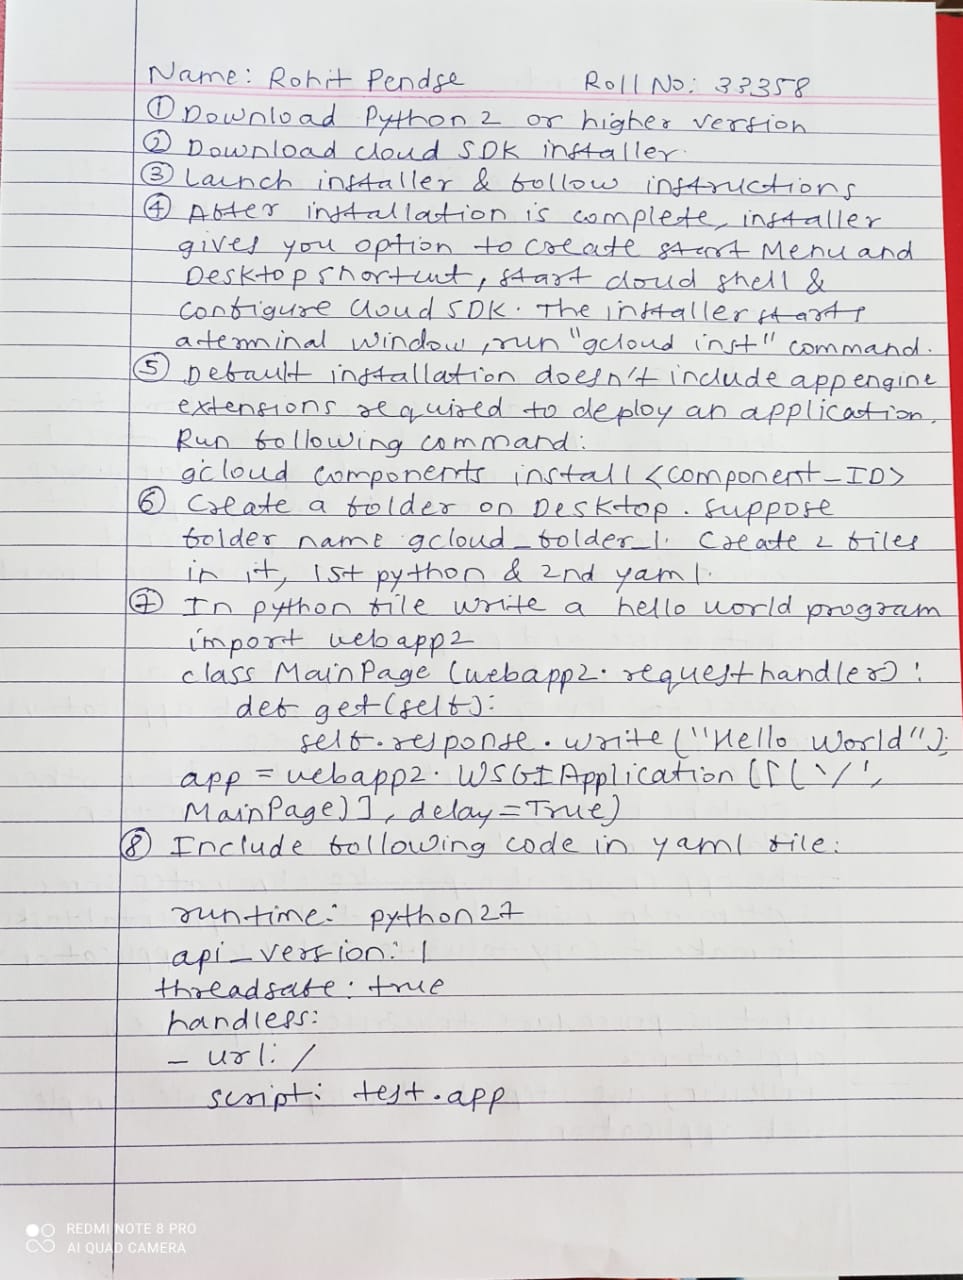 Name: Rohit Pendse Roll No: 33358
① Download Python 2 or higher version
② Download cloud SDK installer.
③ Launch installer & follow instructions
④ After installation is complete, installer
gives you option to create start Menu and
Desktop shortcut, start cloud shell &
configure cloud SDK. The installer starts
a terminal window, run "gcloud inst" command.
⑤ Default installation doesn't include app engine
extensions required to deploy an application.
Run following command:
gcloud components install <component_ID>
⑥ Create a folder on Desktop. Suppose
folder name gcloud_folder_1. Create 2 files
in it, 1st python & 2nd yaml.
⑦ In python file write a hello world program
import webapp2
class MainPage (webapp2.requesthandler):
def get(self):
self.response.write("Hello World");
app = webapp2.WSGIApplication([('/',
MainPage)], delay=True)
⑧ Include following code in yaml file:
runtime: python27
api_version: 1
threadsafe: true
handless:
- url: /
script: test.app
REDMI NOTE 8 PRO
AI QUAD CAMERA